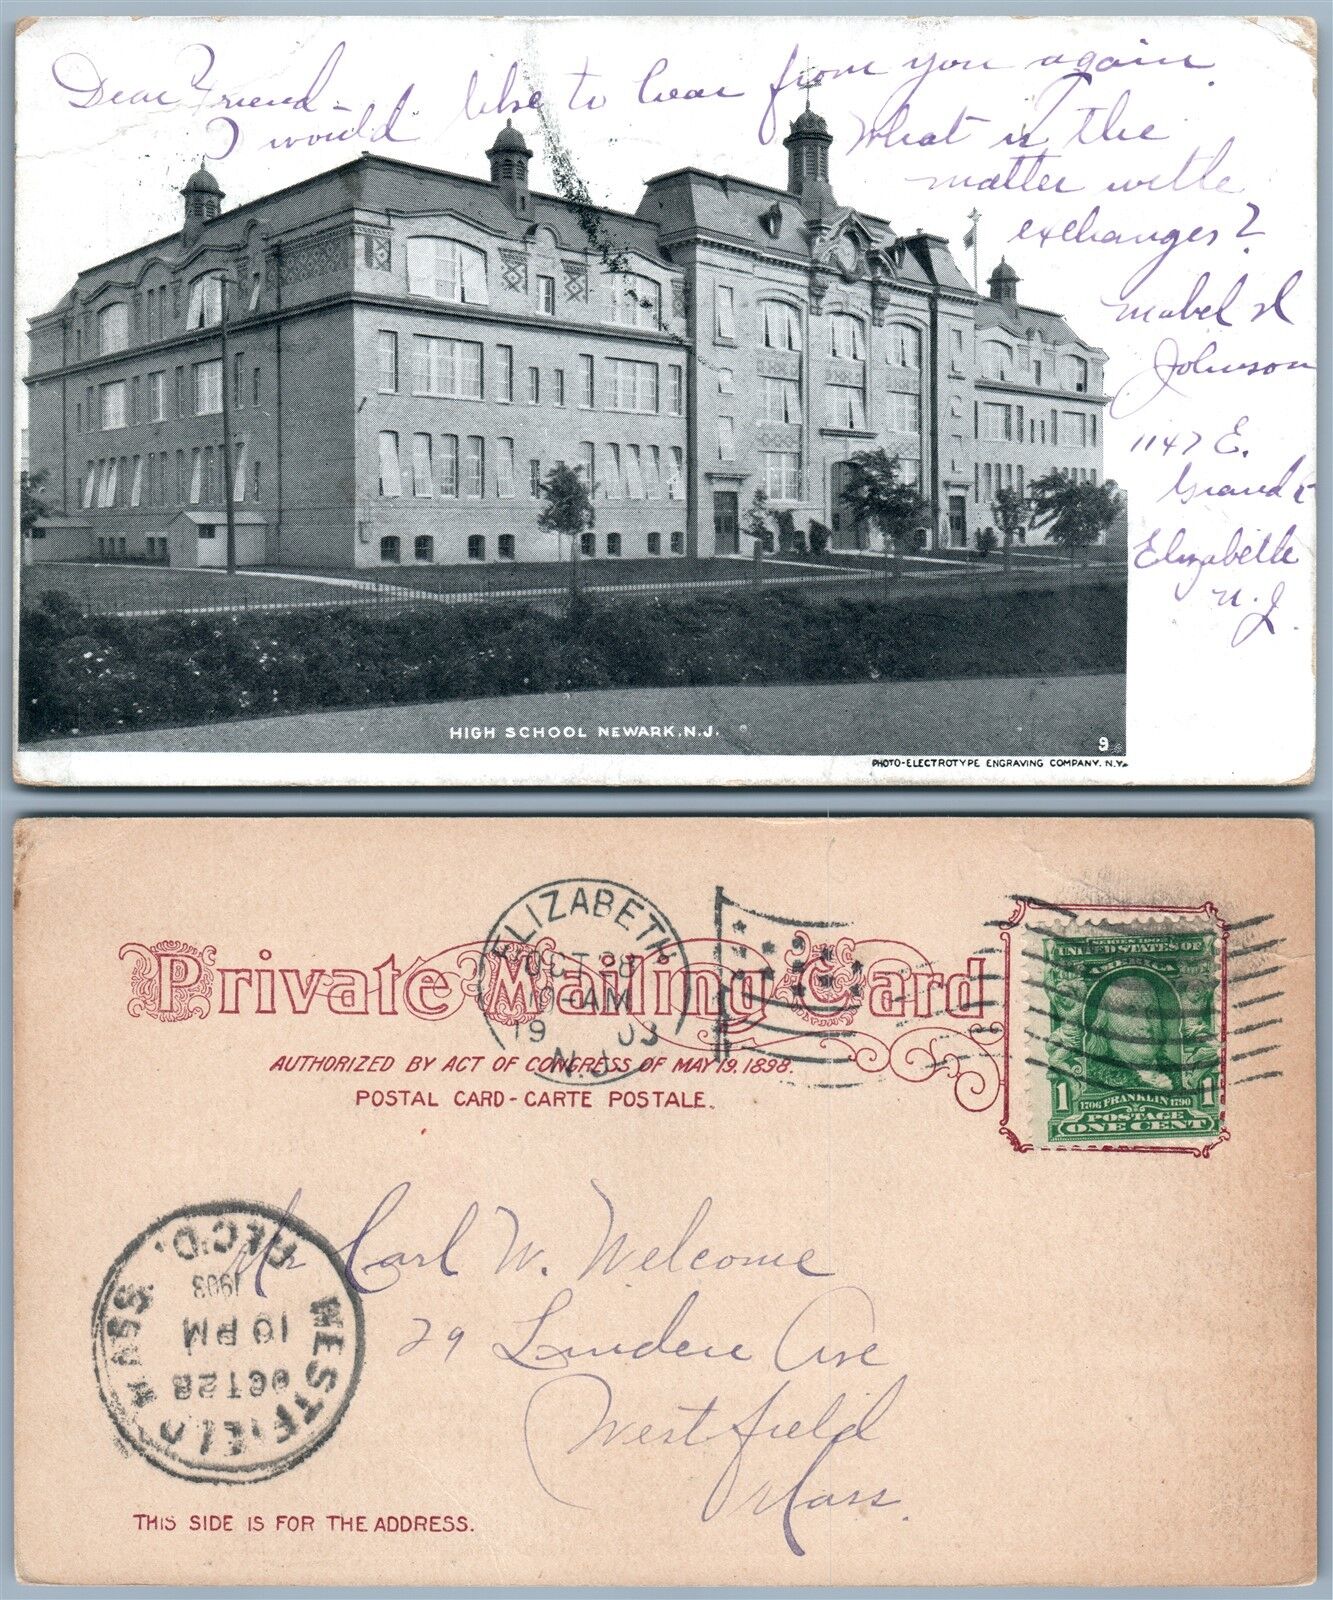 Dear Friend-
I would like to hear from you again.
What is the
matter with the
exchanges?
Mabel H
Johnson
1147 E.
Grand St
Elizabeth
N. J.
HIGH SCHOOL NEWARK. N. J.
9
PHOTO-ELECTROTYPE ENGRAVING COMPANY. N.Y.
Private Mailing Card
AUTHORIZED BY ACT OF CONGRESS OF MAY 19, 1898.
POSTAL CARD - CARTE POSTALE.
ELIZABETH
OCT 28
10-AM
19 03
N.J.
UNITED STATES OF
AMERICA
1 1
1706 FRANKLIN 1790
POSTAGE
ONE CENT
WESTFIELD MASS.
OCT 28
10 PM
1903
REC'D.
Mr Carl W. Welcome
29 Linden Ave
Westfield
Mass.
THIS SIDE IS FOR THE ADDRESS.